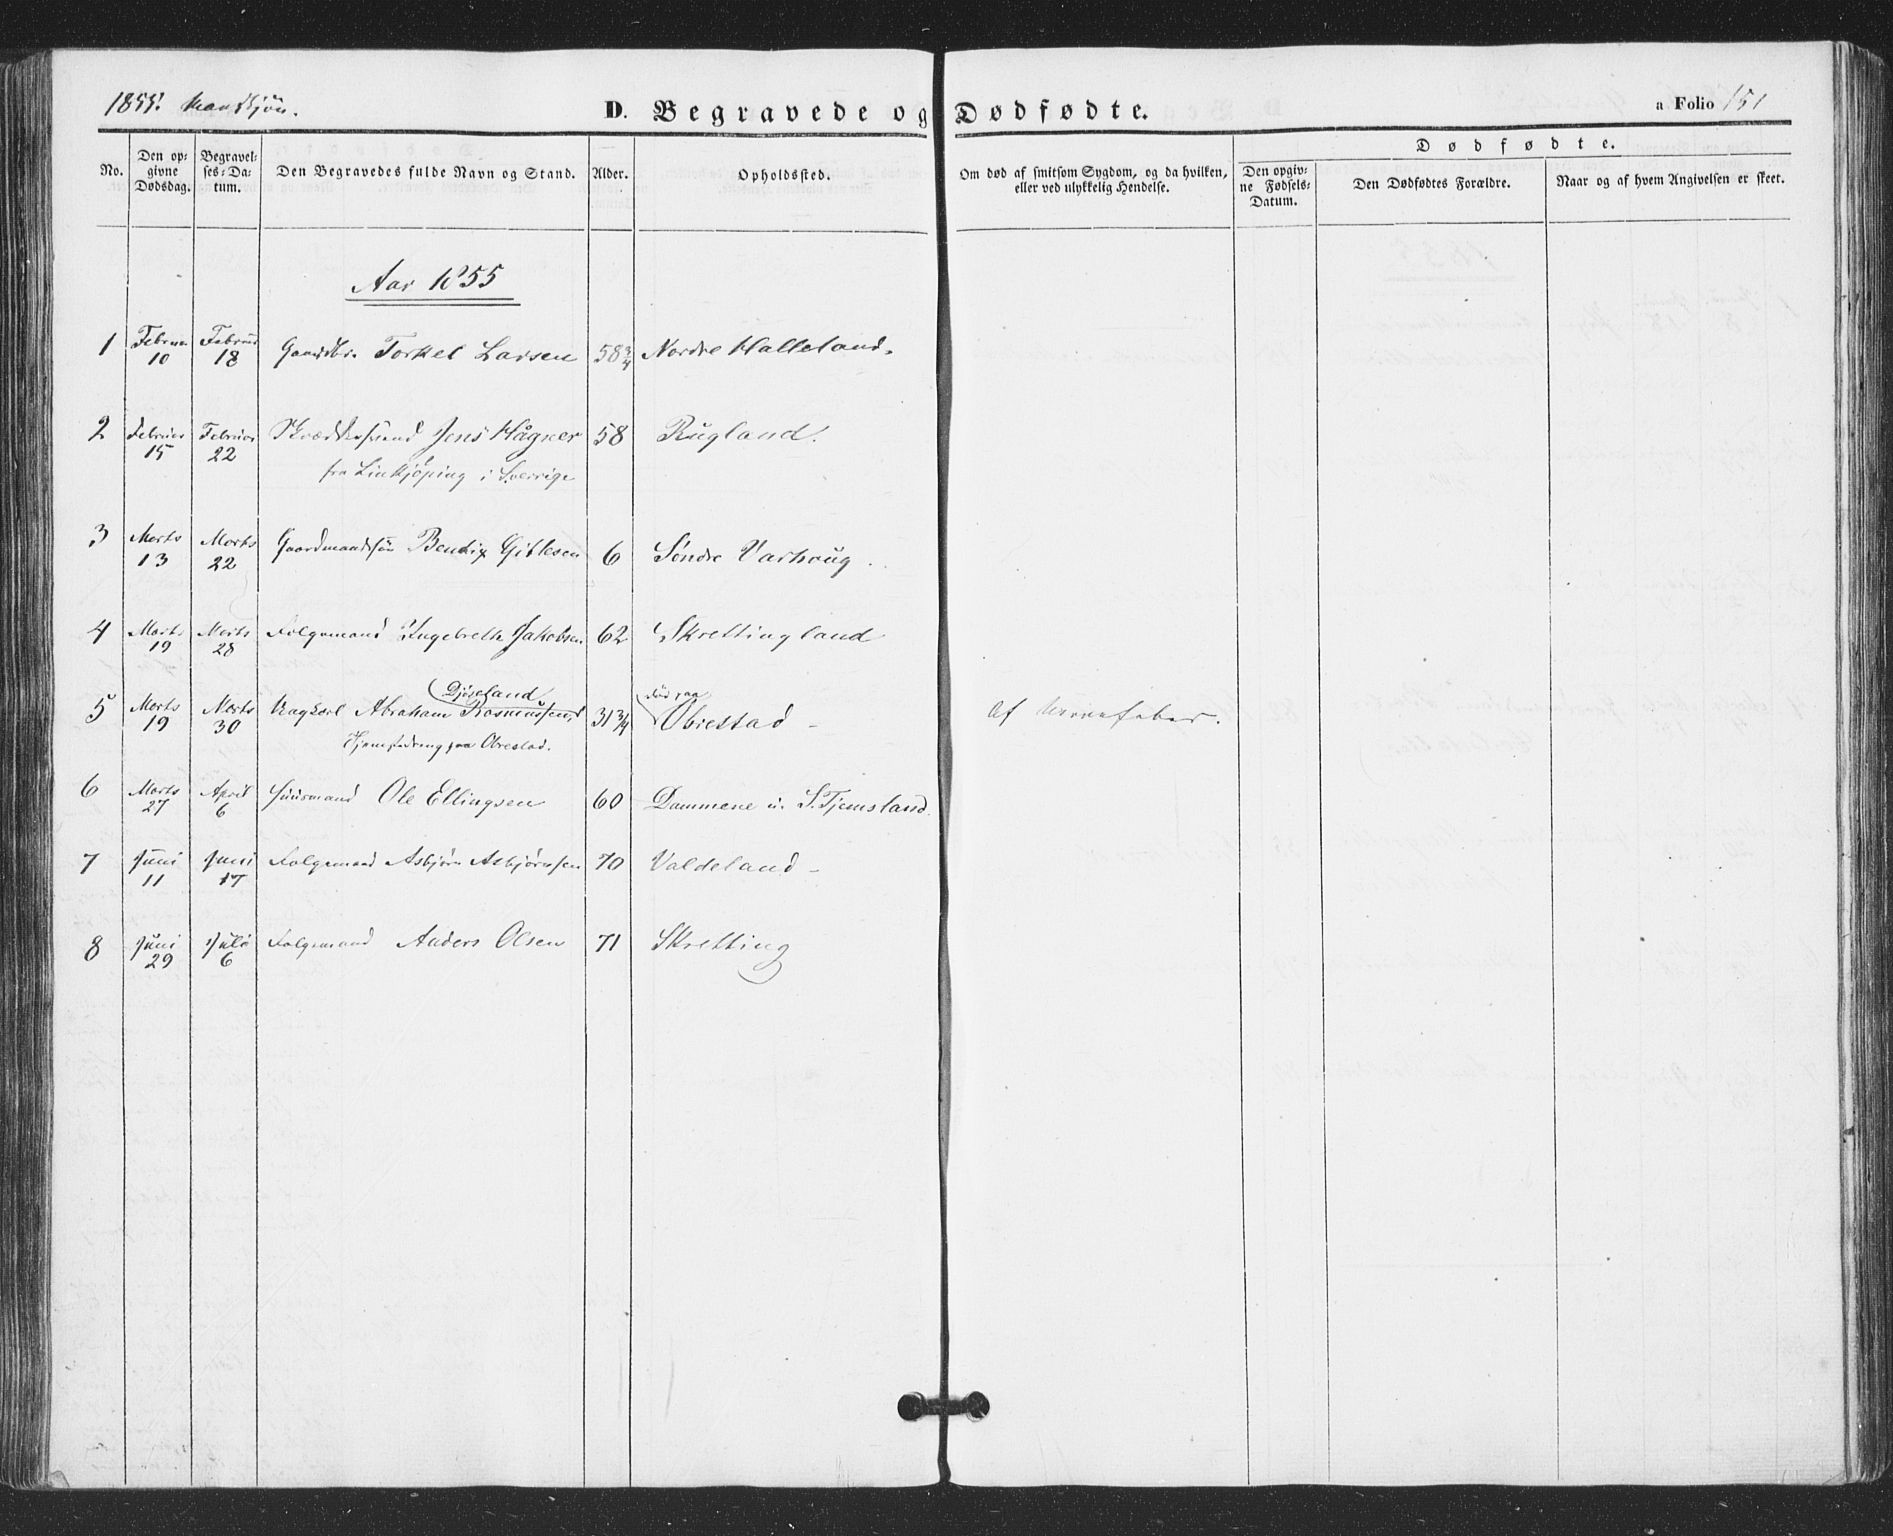 1855. Mandkjøn.
D. Begravede og Dødfødte.
a Folio 151
No.
Den op-
givne
Dødsdag.
Begravel-
ses-Da-
tum.
Den Begravedes fulde Navn og Stand.
Alder.
Opholdssted.
Om død af smitsom Sygdom, og da hvilken,
eller ved ulykkelig Hendelse.
Dødfødte.
Den opgiv-
ne Fødsels-
Datum.
Den Dødfødtes Forældre.
Naar og af hvem Angivelsen er skeet.
Aar 1855
1 Februar 10 Februar 18 Torkel Larsen 58 3/4 Nordre Halleland.
2 Februar 15 Februar 22 Jens Hägner 58 Rugland.
fra Linkjöping i Sverrige
3 Marts 13 Marts 22 Gaardmandssøn Bendix Gitlesen 6 Søndre Varhoug.
4 Marts 19 Marts 28 Folgemand Ingebreth Jakobsen 62 Skrettingland
5 Marts 19 Marts 30 Abraham Rasmussen 31 3/4 Obrestad
død paa
paa Obrestad.
Af Nervefeber.
6 Marts 27 April 6 Huusmand Ole Ellingsen 60 Dammene u. S. Tjemsland
7 Juni 11 Juni 17 Folgemand Asbjørn Asbjørnsen 70 Valdeland
8 Juni 29 Juli 6 Folgemand Anders Olsen 71 Skretting